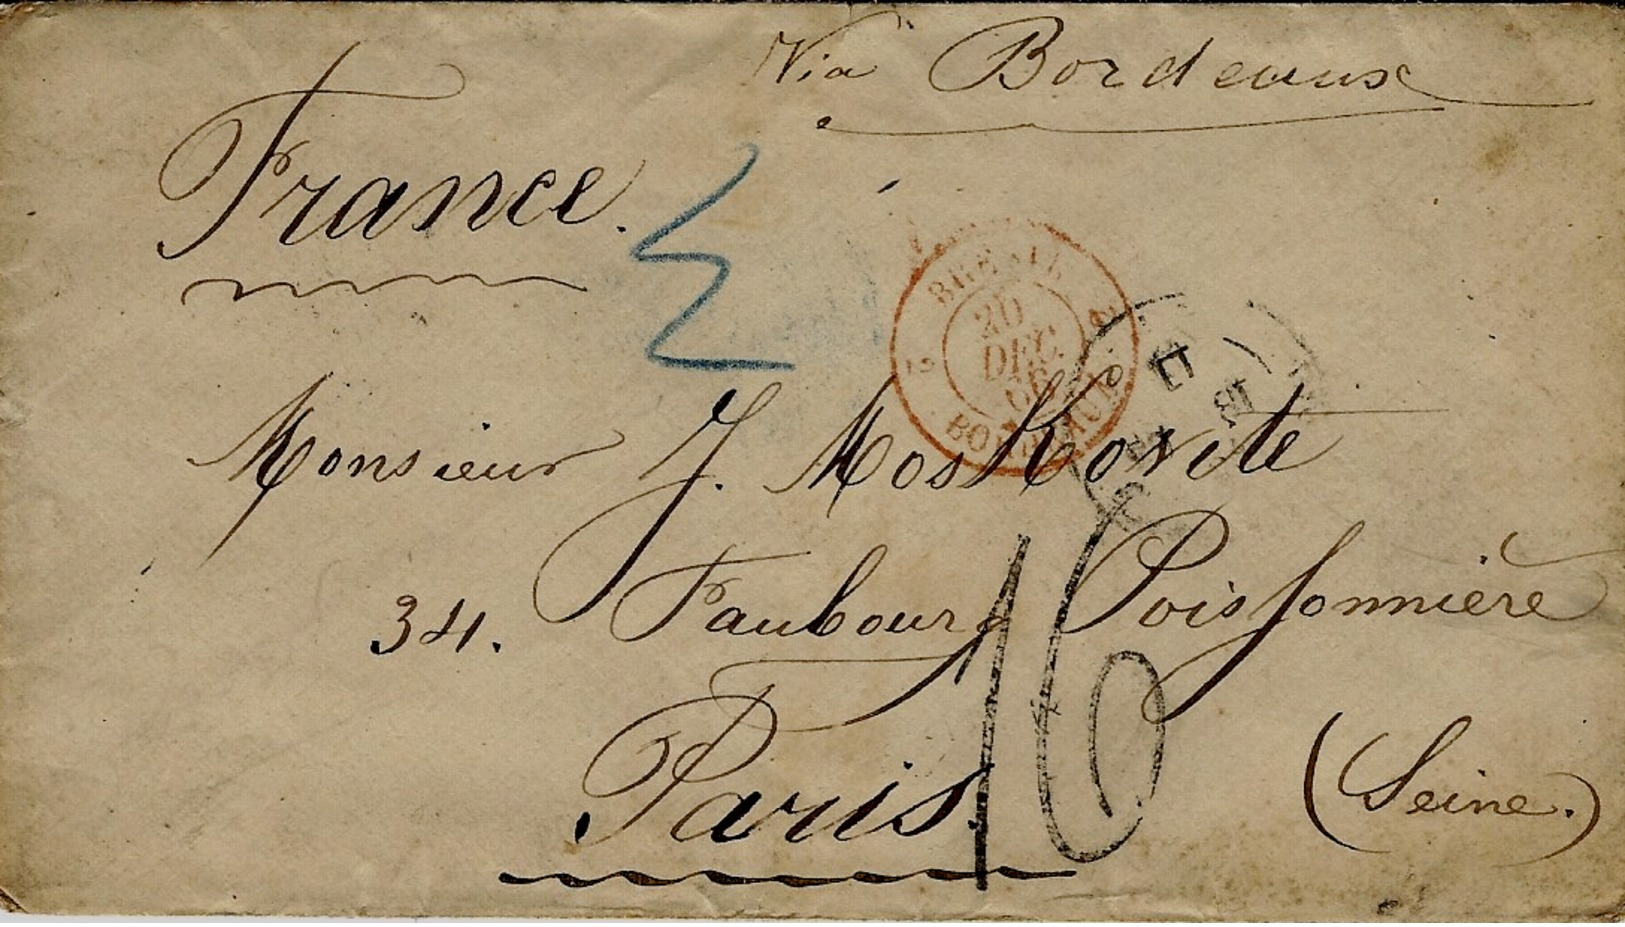 Via Bordeaux
France.
2
BRESIL
2
20
DEC.
66
BORDEAUX
Monsieur J. Moskovite
34. Faubourg Poissonnière
16
Paris.
(Seine.)